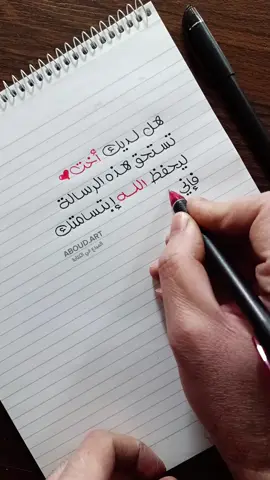 هل لديك أخت
تستحق هذه الرسالة
ليحفظ الله إبتسامتك
فإني
ABOUD.ART